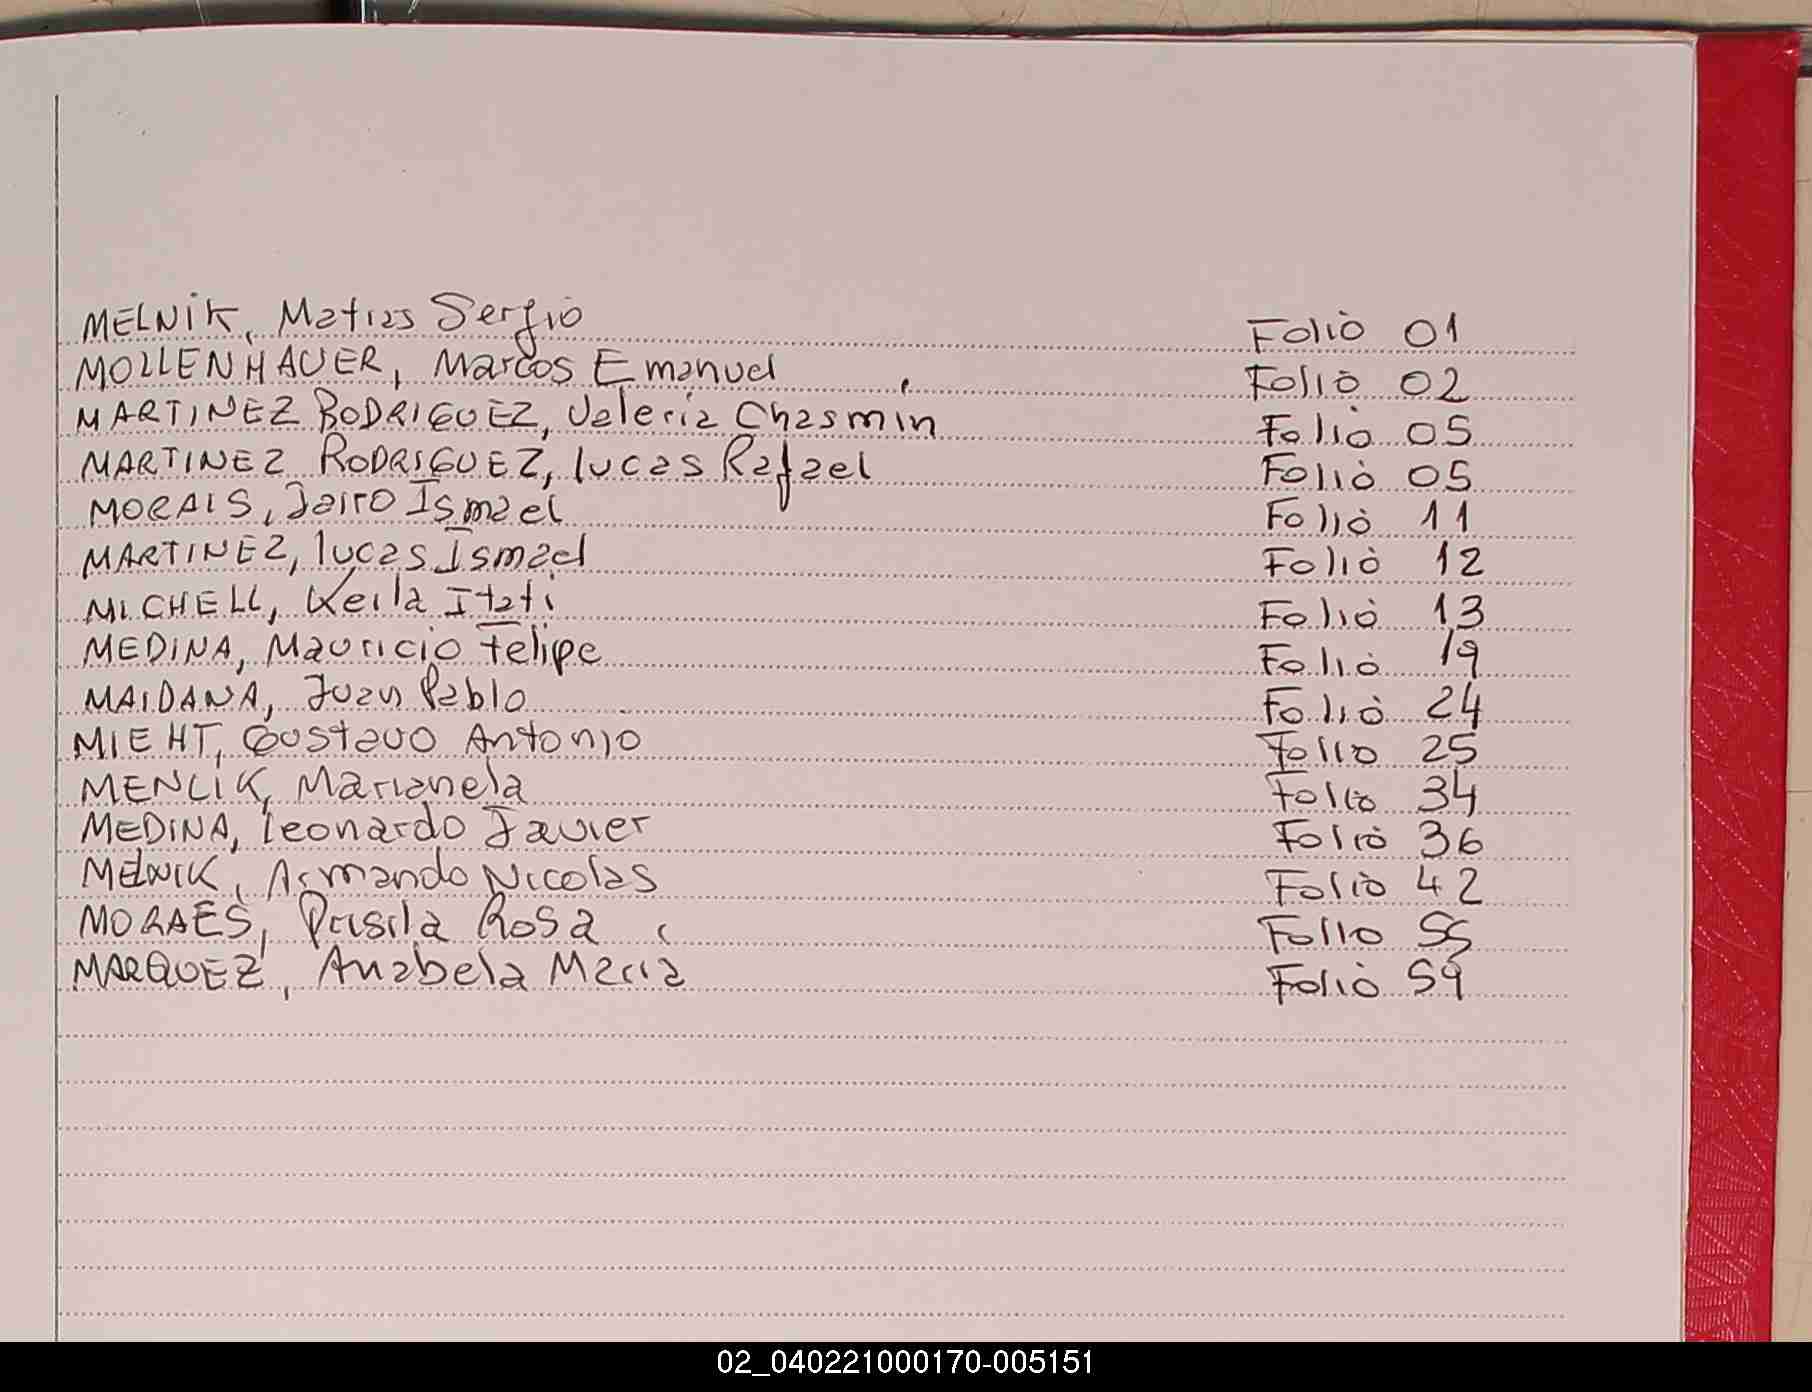 MELNIK, Matias Sergio Folio 01
MOLLENHAUER, Marcos Emanuel Folio 02
MARTINEZ RODRIGUEZ, Valeria Chasmin Folio 05
MARTINEZ RODRIGUEZ, lucas Rafael Folio 05
MORAIS, Jairo Ismael Folio 11
MARTINEZ, lucas Ismael Folio 12
MICHELL, Keila Itati Folio 13
MEDINA, Mauricio Felipe Folio 19
MAIDANA, Juan Pablo Folio 24
MIEHT, Gustavo Antonio Folio 25
MENLIK, Marianela Folio 34
MEDINA, Leonardo Javier Folio 36
MELNIK, Armando Nicolas Folio 42
MORAES, Prisila Rosa Folio 55
MARQUEZ, Anabela Maria Folio 59
02_040221000170-005151